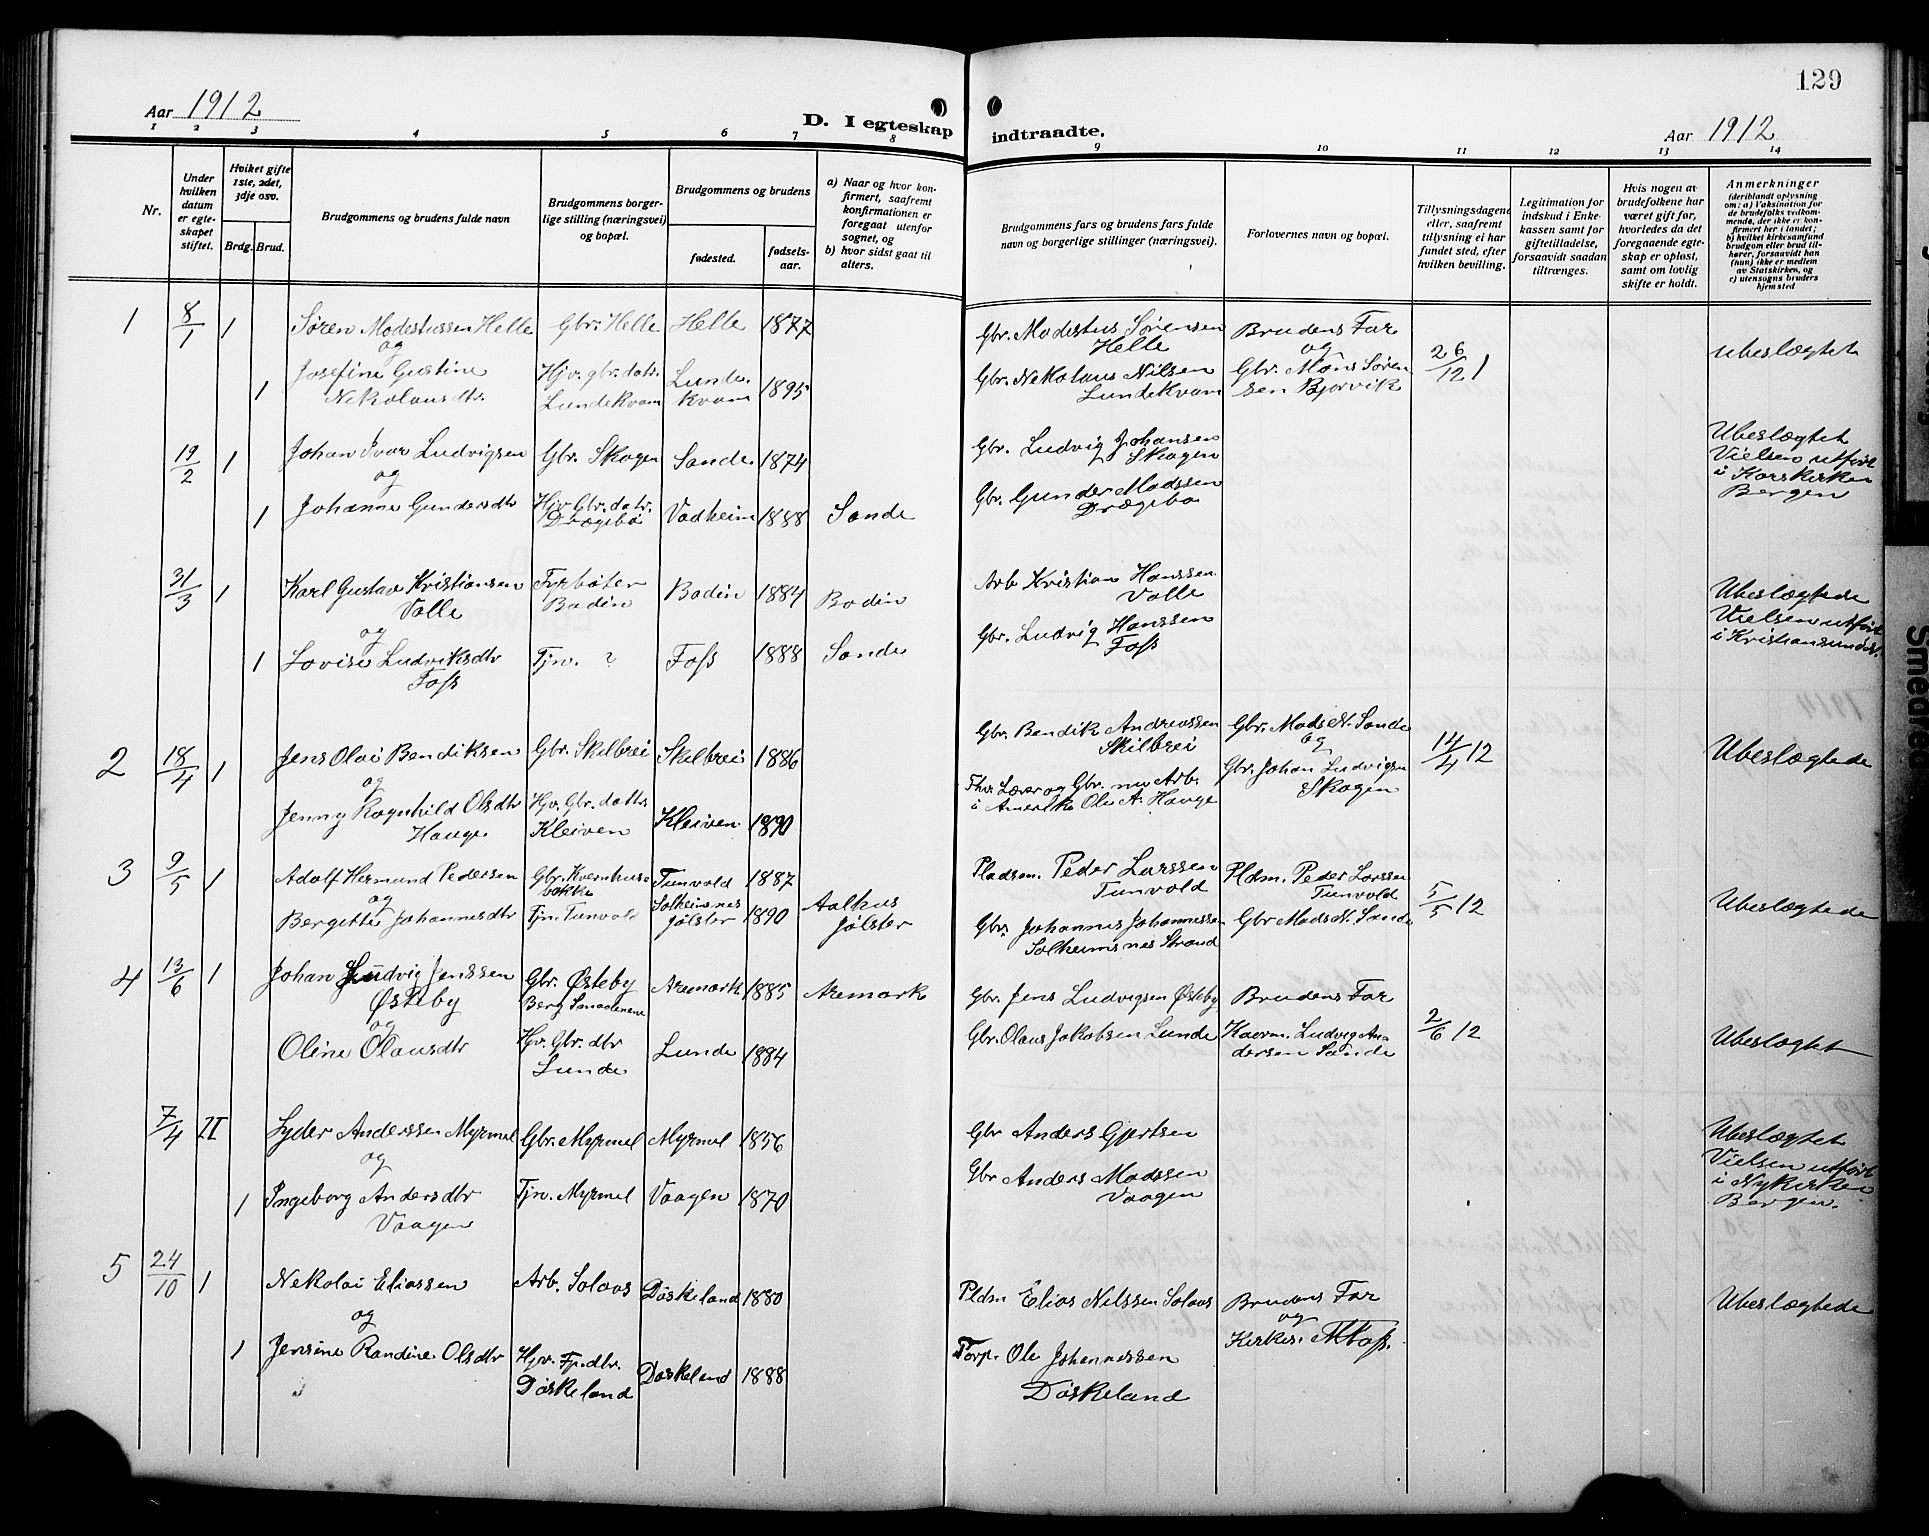 129
Aar 1912
D. I egteskap indtraadte.
Aar 1912
1 2 3 4 5 6 7 8 9 10 11 12 13 14
Nr.
Under hvilken datum er egteskapet stiftet.
Hvilket gifte 1ste, 2det, 3dje osv.
Brdg. Brud.
Brudgommens og brudens fulde navn
Brudgommens borgerlige stilling (næringsvei) og bopæl.
Brudgommens og brudens
fødested.
fødselsaar.
a) Naar og hvor konfirmert, saafremt konfirmationen er foregaat utenfor sognet, og
b) hvor sidst gaat til alters.
Brudgommens fars og brudens fars fulde navn og borgerlige stillinger (næringsvei).
Forlovernes navn og bopæl.
Tillysningsdagene eller, saafremt tillysning ei har fundet sted, efter hvilken bevilling.
Legitimation for indskud i Enkekassen samt for giftetilladelse, forsaavidt saadan tiltrænges.
Hvis nogen av brudefolkene har været gift før, hvorledes da det foregaaende egteskap er opløst, samt om lovlig skifte er holdt.
Anmerkninger (deriblandt oplysning om: a) Vaksination for de brudefolks velkommende, der ikke er konfirmert her i landet; b) hvilket kirkesamfund brudgom eller brud tilhører, forsaavidt han (hun) ikke er medlem av Statskirken, og c) utensogns bruders hjemsted
1 8/1 1 Søren Modestussen Helle Gbr. Helle Helle 1877 Gbr. Modestus Sørensen Helle Brudens Far 26/12 1 ubeslægtet
og
1 Josefine Gustine Nekolausdtr. Hjv. gbr. datr. Lundekvam Lundekvam 1895 Gbr. Nekolaus Nilsen Lundekvam og Gbr. Mons Sørensen Bjørvik
19/2 1 Johan Ivar Ludvigsen Gbr. Skogen Sande 1874 Gbr. Ludvig Johansen Skogen Ubeslægtet Vielsen utført i Korskirken Bergen
og
1 Johanne Gundersdtr Hjv. Gbr. datr. Drægebø Vadheim 1888 Sande Gbr. Gunder Madssen Drægebø
31/3 1 Karl Gustav Kristiansen Valle Fyrbøter Bodin Bodin 1884 Bodin Arb Kristian Hanssen Valle Ubeslægtede Vielsen utført i Kristiansund
og
1 Lovise Ludviksdtr Foss Tjn. ? Foss 1888 Sande Gbr. Ludvig Hanssen Foss
2 18/4 1 Jens Olai Bendiksen Gbr. Skilbrei Skilbrei 1886 Gbr. Bendik Andreassen Skilbrei Gbr. Mads N. Sande 14/4 12 Ubeslægtede
og
Jenny Ragnhild Olsdtr Hauge Hjv. Gbr. datr. Kleiven Kleiven 1890 Fhv. Lærer og Gbr. nu Arb. i Amerika Ole A. Hauge og Gbr. Johan Ludvigsen Skogen
3 9/5 1 Adolf Hermund Pedersen Gbr. Kvernhusbakke Tunvold 1887 Pladsm. Peder Larssen Tunvold Pldm. Peder Larssen Tunvold 5/5 12 Ubeslægtede
og
Bergitte Johannesdtr Tjn. Tunvold Solheimsnes Jølster 1890 Aalhus Jølster Gbr. Johannes Johannessen Solheimsnes Strand Gbr Mads N. Sande
4 13/6 1 Johan Ludvig Jenssen Østeby Gbr. Østeby Berg Smaalenene Aremark 1885 Aremark Gbr. Jens Ludvigsen Østeby Brudens Far 2/6 12 Ubeslægtet
og
Oline Olausdtr Hjv. Gbr. dtr Lunde Lunde 1884 Gbr. Olaus Jakobsen Lunde Ludvig Andersen Sande
7/4 II Lyder Anderssen Myrmel Gbr. Myrmel Myrmel 1856 Gbr Anders Gjertsen Ubeslægtet Vielsen utført i Nykirken Bergen.
og
1 Ingeborg Andersdtr Vaagen Tjn. Myrmel Vaagen 1870 Gbr Anders Madssen Vaagen
5 24/10 1 Nekolai Eliassen Arb. Solaas Døskeland 1880 Pldsm Elias Nilssen Solaas Brudens Far Ubeslægtede
og
1 Jensine Randine Olsdtr Hjv. Fp. dtr. Døskeland Døskeland 1888 Forp. Ole Johannessen Døskeland og Kirkes. Foss.